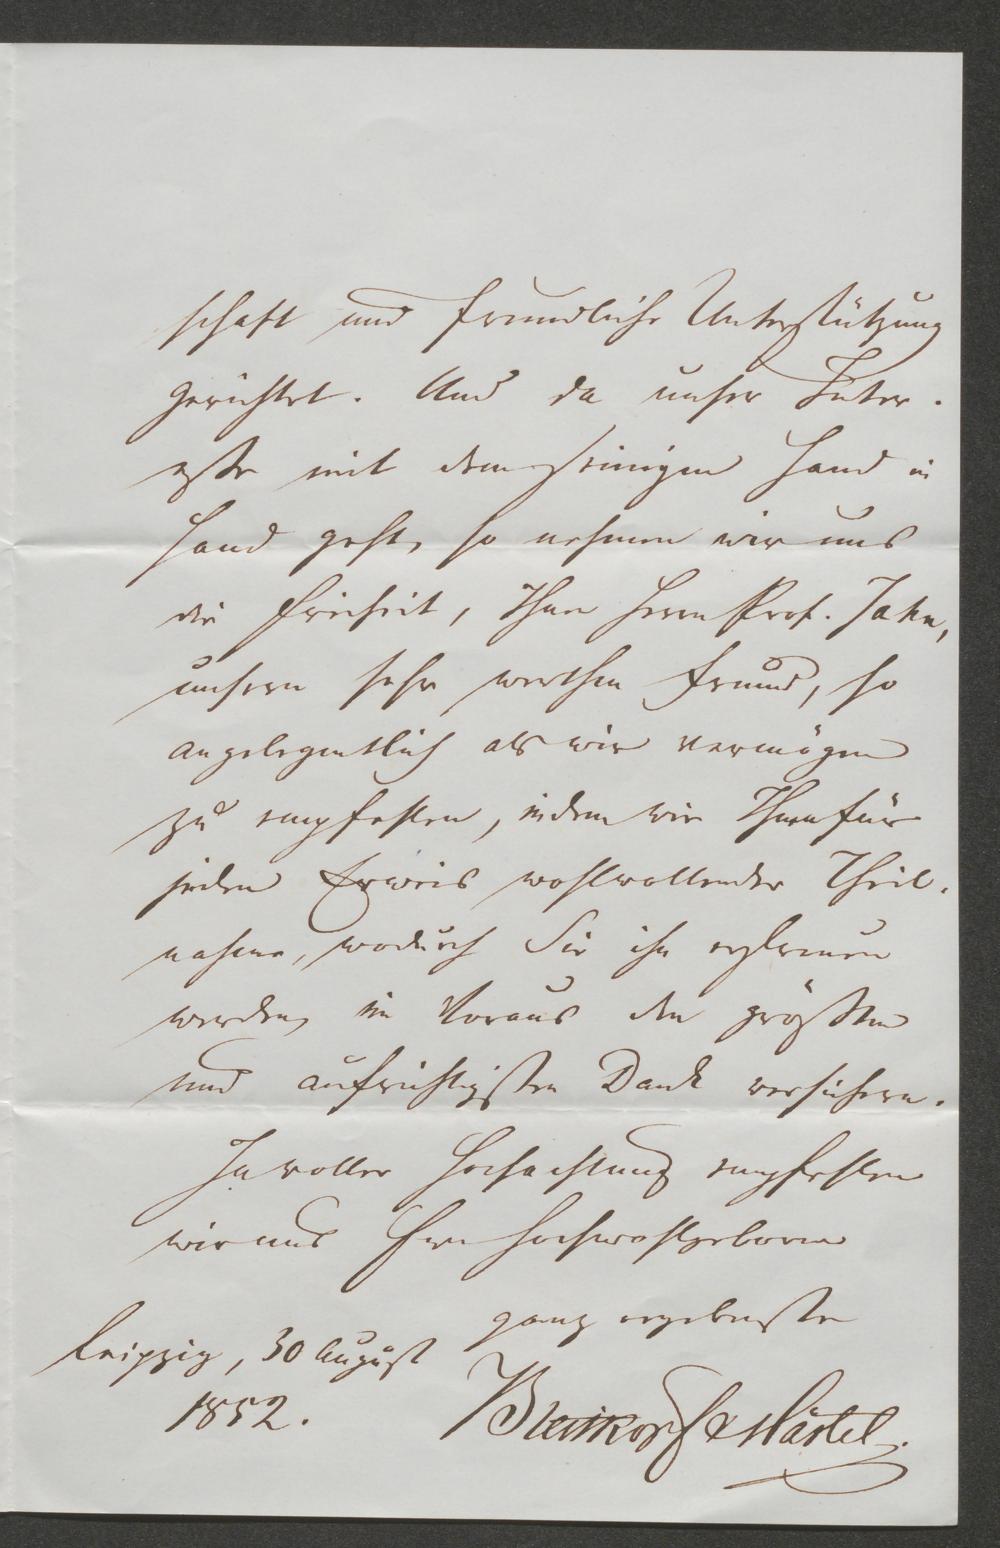 schaft und freundliche Unterstützung
gerichtet. Und da unser Inter-
esse mit dem seinigen Hand in
Hand geht, so nehmen wir uns
die Freiheit, Ihnen Herrn Prof. Jahn,
unsern sehr werthen Freund, so
angelegentlich als wir vermögen
zu empfehlen, indem wir Ihnen für
jeden Erweis wohlwollender Theil-
nahme, wodurch Sie ihn erfreuen
werden, im Voraus den größten
und aufrichtigsten Dank versichern.
In voller Hochachtung empfehlen
wir uns Ew. Hochwohlgeboren
ganz ergebenste
Leipzig, 30 August
1852.
Breitkopf & Härtel